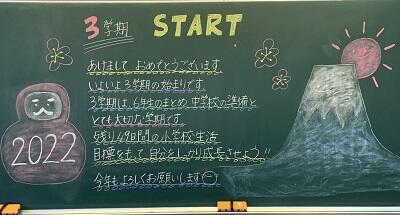 3学期 START
あけまして おめでとうございます
いよいよ3学期の始まりです
3学期は、6年生のまとめ、中学校の準備と
とても大切な学期です
残り49日間の小学校生活
目標をもって自分をしっかり成長させよう!!
今年もよろしくお願いします
2022